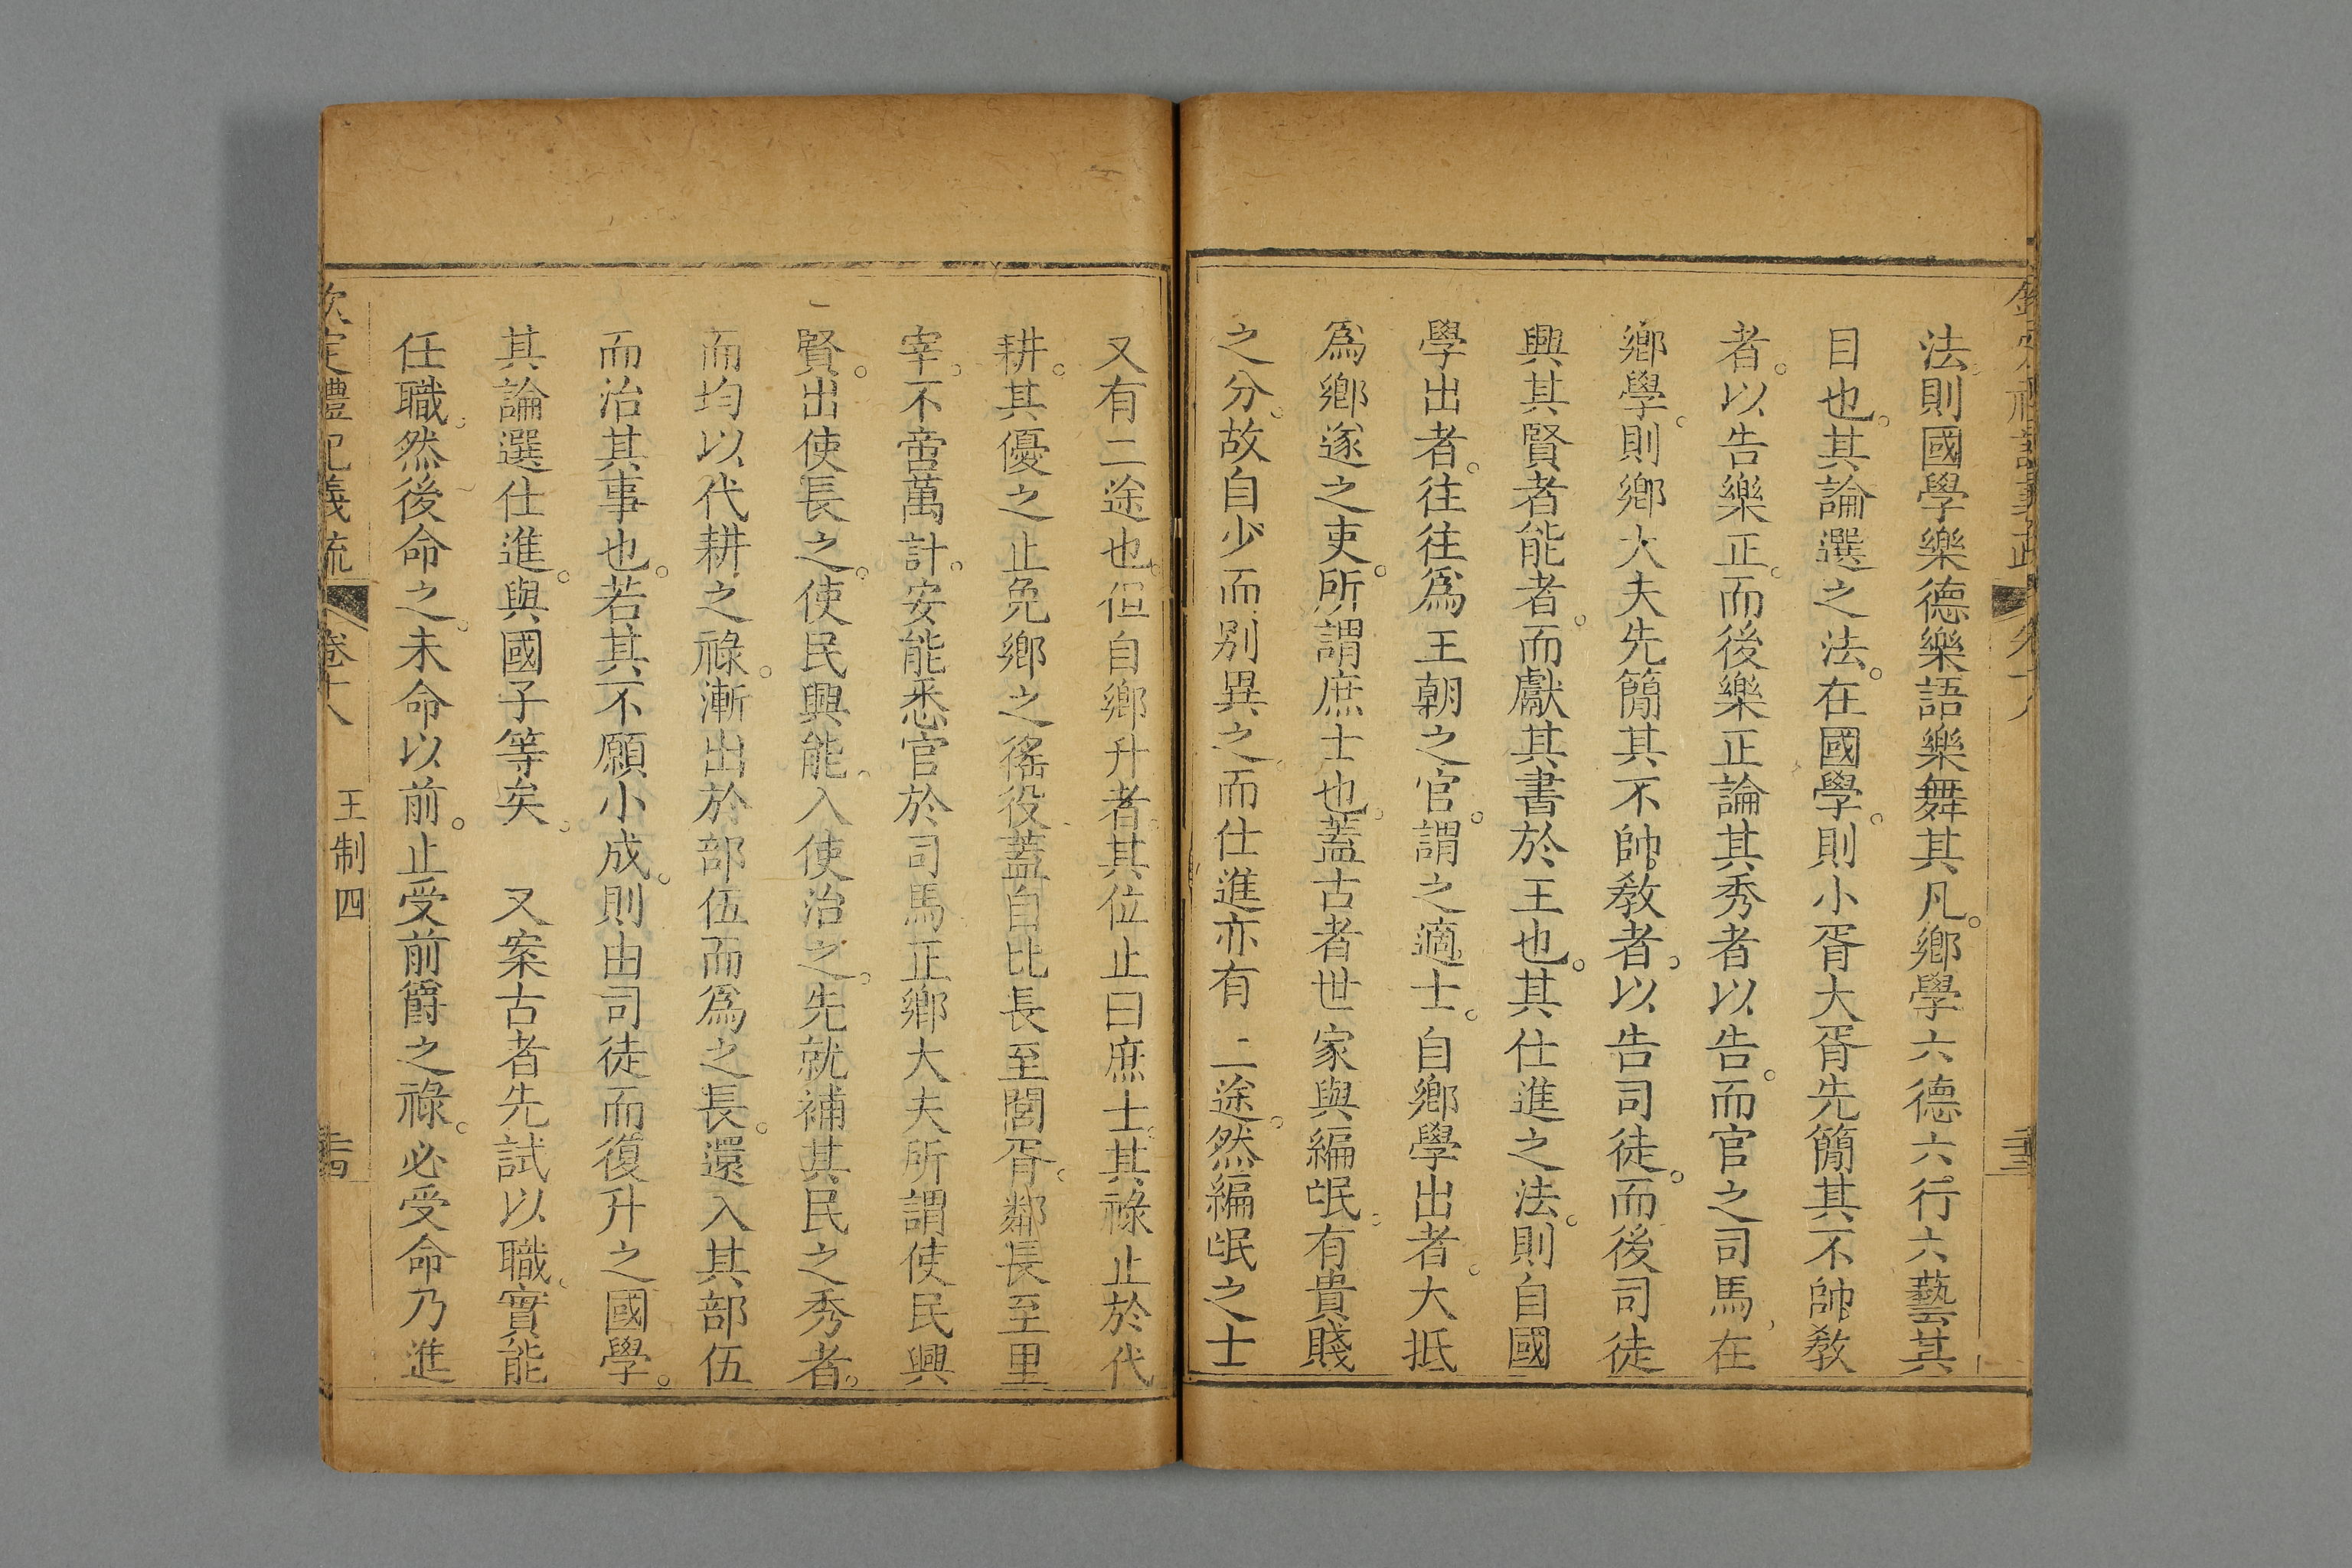 法則國學樂德樂語樂舞其凡。鄉學六德六行六藝其
目也。其論選之法。在國學。則小胥大胥先簡其不帥教
者。以告樂正。而後樂正論其秀者以告。而官之司馬、在
鄉學。則鄉大夫先簡其不帥教者。以告司徒。而後司徒
興其賢者能者。而獻其書於王也。其仕進之法。則自國
學出者。往往爲王朝之官。謂之適士。自鄉學出者。大抵
爲鄉遂之吏。所謂庶士也。蓋古者世家與編氓。有貴賤
之分。故自少而別異之。而仕進亦有二途。然編氓之士
又有二途也。但自鄉升者。其位止曰庶士。其祿止於代
耕。其優之止免鄉之徭役。蓋自比長至閭胥。鄰長至里
宰。不啻萬計。安能悉官於司馬。正鄉大夫所謂使民興
賢。出使長之。使民興能。入使治之。先就補其民之秀者。
而均以代耕之祿。漸出於部伍而爲之長。還入其部伍
而治其事也。若其不願小成。則由司徒而復升之國學。
其論選仕進。與國子等矣。 又案古者先試以職。實能
任職。然後命之。未命以前。止受前爵之祿。必受命乃進
欽定禮記義疏 卷十八 王制四 二十四